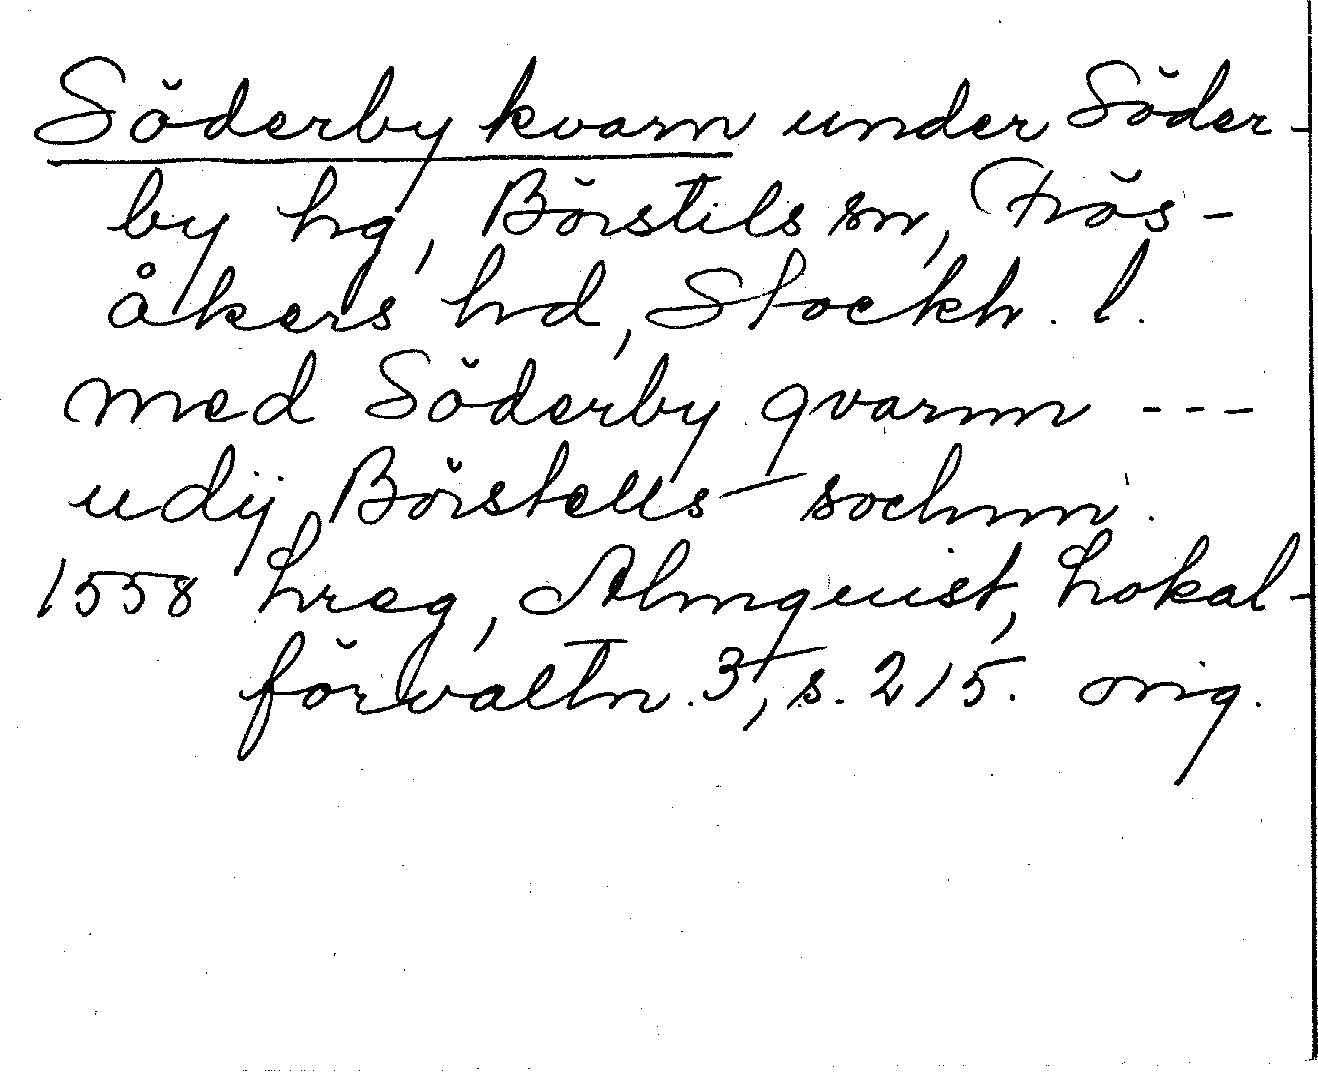 Söderby kvarn under Söder-
by hg, Börstils sn, Frös-
åkers hd, Stockh. l.
med Söderby qvarnn ---
udij Börstells sochnn.
1558 hreg, Almquist, Lokal-
förvaltn. 3, s. 215. orig.